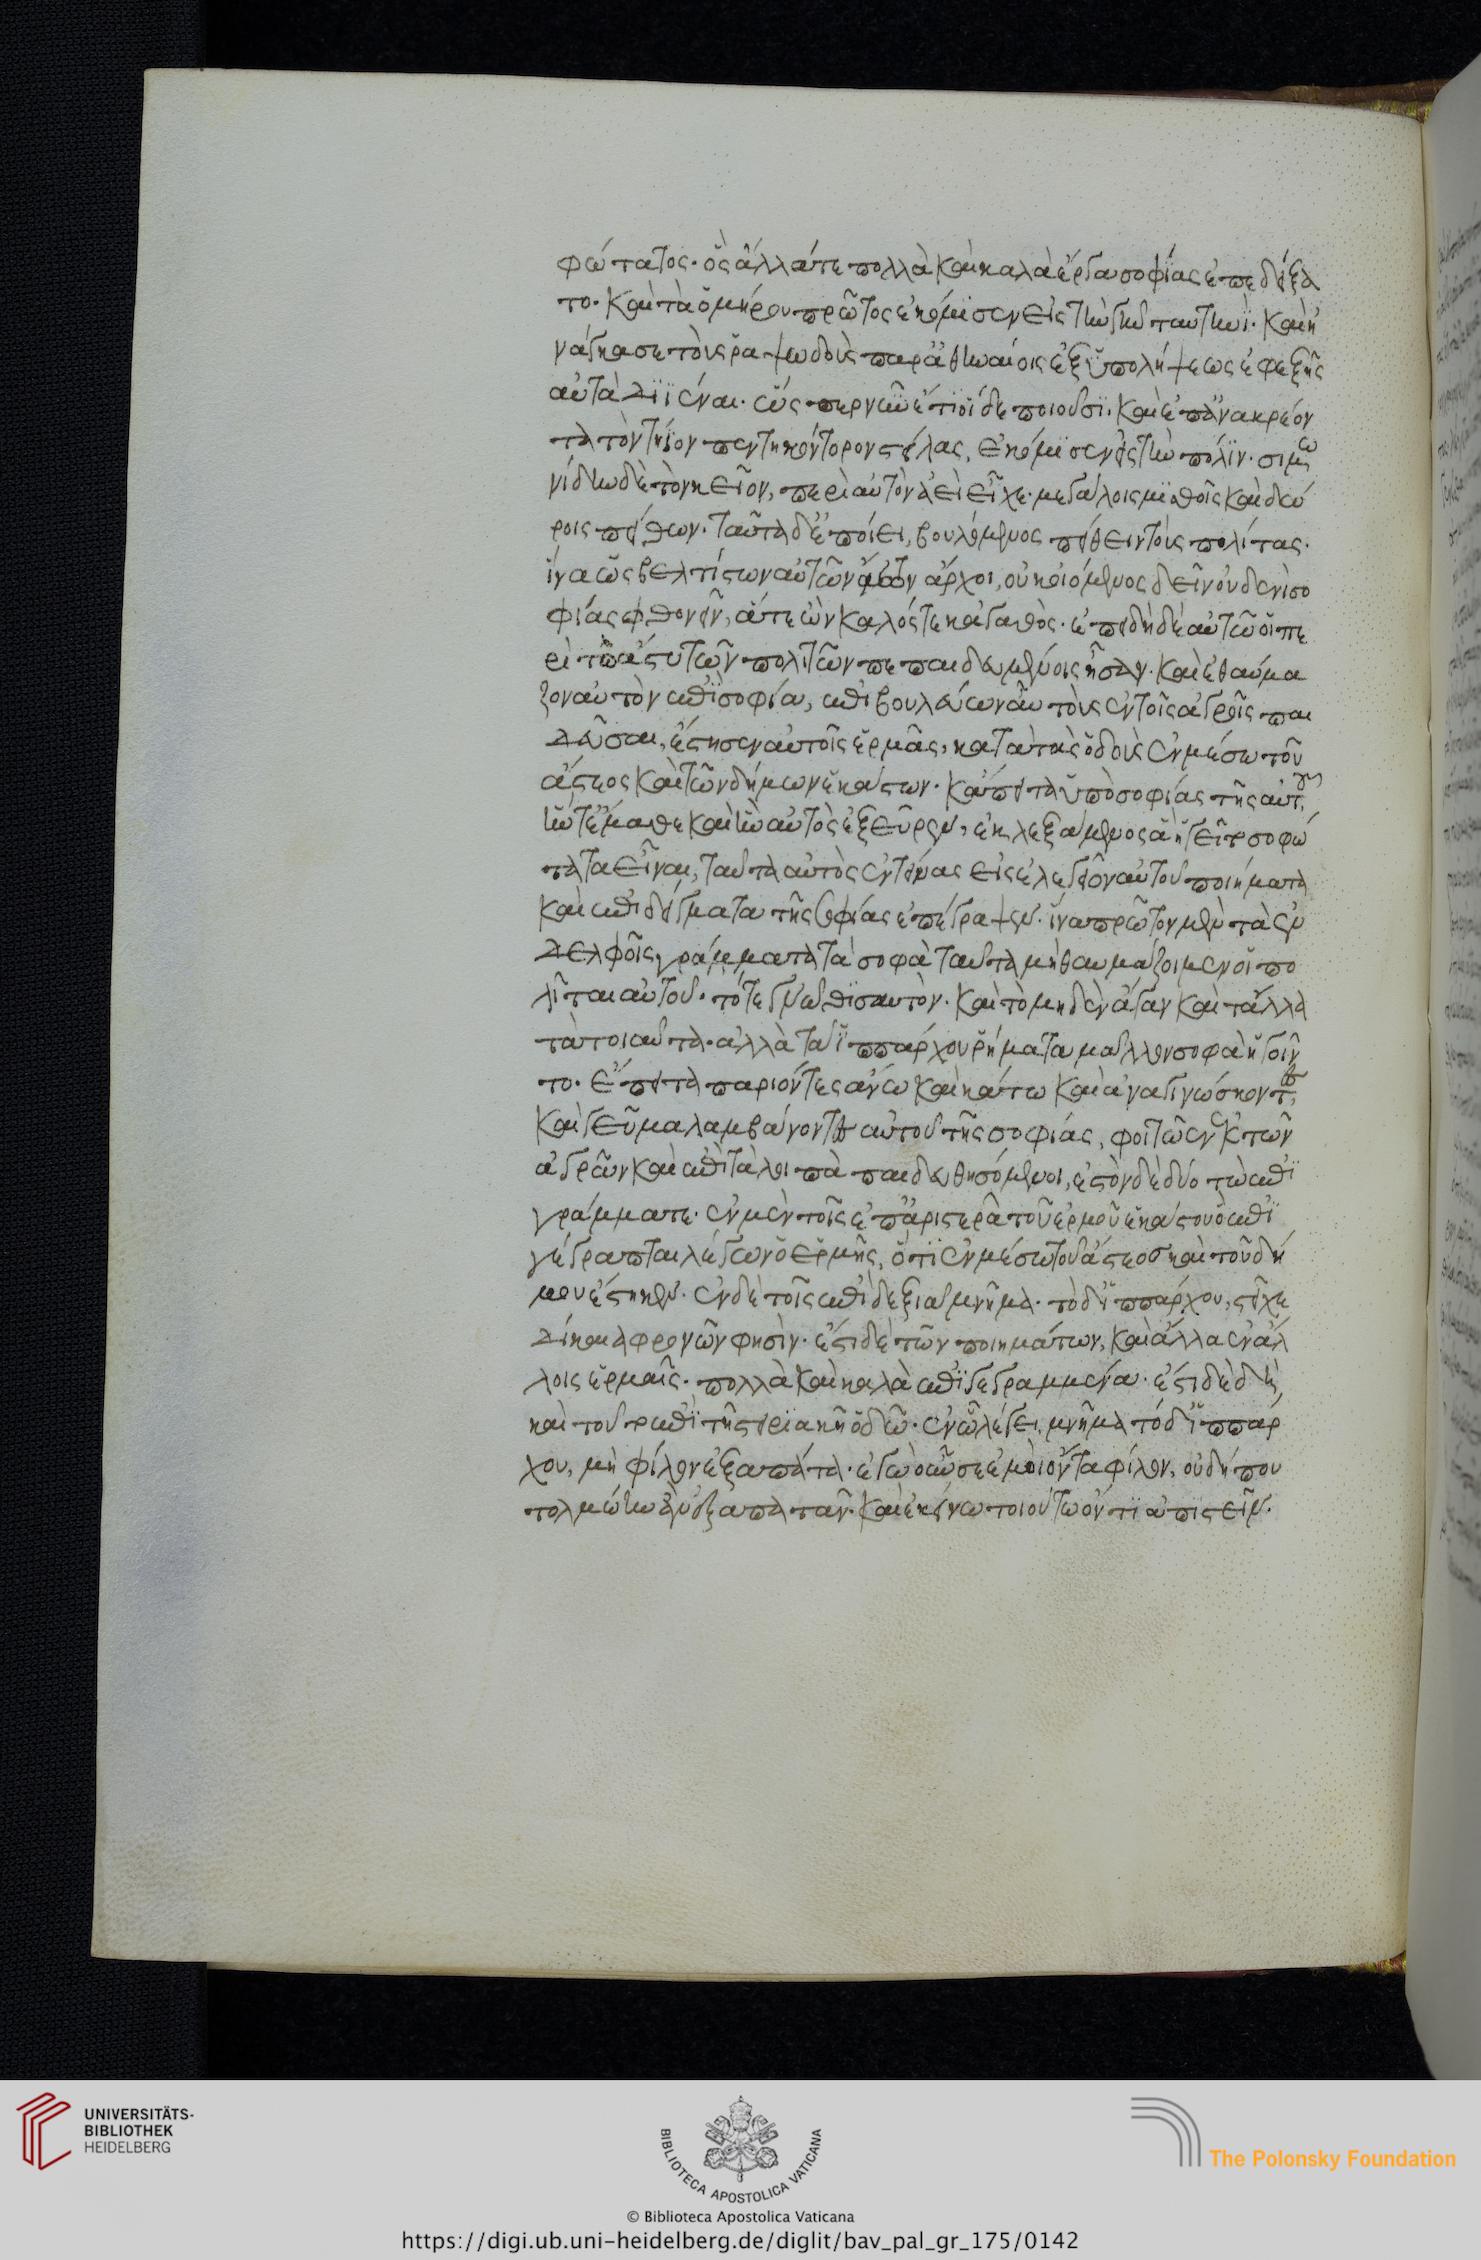 φώτατος· ὃς ἄλλά τε πολλὰ καὶ καλὰ ἔργα σοφίας ἐπεδείξα
το· καὶ τὰ ὁμήρου πρῶτος ἐκόμισεν εἰς τὴν γῆν ταυτηνί· καὶ ἠ
νάγκασε τοὺς ῥαψωδοὺς παρ' ἀθηναίοις ἐξ ὑπολήψεως ἐφεξῆς
αὐτὰ διϊέναι· ὥς περ νῦν ἔτι οἵδε ποιοῦσι· καὶ ἐπ' ἀνακρέον
τα τὸν τήϊον πεντηκόντορον στείλας, ἐκόμισεν εἰς τὴν πόλιν· σιμω
νίδην δὲ τὸν κεῖον, περὶ αὐτὸν ἀεὶ εἶχε· μεγάλοις μισθοῖς καὶ δώ
ροις πείθων· ταῦτα δ' ἐποίει, βουλόμενος πείθειν τοὺς πολίτας·
ἵνα ὡς βελτίστων αὐτῶν ὄντων ἄρχοι, οὐκ οἰόμενος δεῖν οὐδενὶ σο
φίας φθονεῖν, ἅτε ὢν καλός τε κἀγαθὸς· ἐπειδὴ δὲ αὐτῶ οἱ πε
ρὶ τὸ ἄστυ τῶν πολιτῶν πεπαιδευμένοι ἦσαν· καὶ ἐθαύμα
ζον αὐτὸν ἐπὶ σοφία, ἐπιβουλεύων αὖ τοὺς ἐν τοῖς ἀγροῖς παι
δεῦσαι, ἔστησεν αὐτοῖς ἑρμᾶς, κατὰ τὰς ὁδοὺς ἐν μέσω τοῦ
ἄστεος καὶ τῶν δήμων ἑκάστων· κἄπειτα ὑπὸ σοφίας τῆς αὐτοῦ
ἥν τ' ἔμαθε καὶ ἣν αὐτὸς ἐξεῦρεν, ἐκλεξάμενος ἃ ἡγεῖτο σοφώ
τατα εἶναι, ταῦτα αὐτὸς ἐντείνας εἰς ἐλεγεῖον αὐτοῦ ποιήματα
καὶ ἐπιδείγματα τῆς σοφίας ἐπέγραψεν· ἵνα πρῶτον μὲν τὰ ἐν
δελφοῖς γράμματα τὰ σοφὰ ταῦτα μὴ θαυμάζοιμεν οἱ πο
λῖται αὐτοῦ· τό τε γνῶθι σαυτὸν· καὶ τὸ μηδὲν ἄγαν καὶ τἄλλα
τὰ τοιαῦτα· ἀλλὰ τὰ ἱππάρχου ῥήματα μᾶλλον σοφὰ ἡγοῖν
το· ἔπειτα παριόντες ἄνω καὶ κάτω καὶ ἀναγινώσκοντες
καὶ γεῦμα λαμβάνοντες αὐτοῦ τῆς σοφίας, φοιτῶεν ἐκ τῶν
ἀγρῶν καὶ ἐπὶ τὰ λοιπὰ παιδευθησόμενοι, ἐστὸν δὲ δύο τὼ ἐπι
γράμματε· ἐν μὲν τοῖς ἐπ' ἀριστερὰ τοῦ ἑρμοῦ ἑκάστου ἐπι
γέγραπται λέγων ὁ ἑρμῆς, ὅτι ἐν μέσω τοῦ ἄστεος καὶ τοῦ δή
μου ἔστηκεν· ἐν δὲ τοῖς ἐπὶ δεξιὰ μνῆμα· τόδ' ἱππάρχου, στεῖχε
δίκαια φρονῶν φησὶν· ἔστι δὲ τῶν ποιημάτων, καὶ ἄλλα ἐν ἄλ
λοις ἑρμαῖς· πολλὰ καὶ καλὰ ἐπιγεγραμμένα· ἔστι δὲ δὴ
καὶ τοῦτο ἐπὶ τῆ στειριακῆ ὁδῶ· ἐν ὧ λέγει, μνῆμα τόδ' ἱππάρ
χου, μὴ φίλον ἐξαπάτα· ἐγὼ οὖν σε ἐμοὶ ὄντα φίλον, οὐ δήπου
τολμώην ἂν ἐξαπατᾶν· καὶ ἐκείνω τοιούτω ὄντι ἀπιστεῖν·
UNIVERSITÄTS-
BIBLIOTHEK
HEIDELBERG
BIBLIOTECA APOSTOLICA VATICANA
The Polonsky Foundation
© Biblioteca Apostolica Vaticana
https://digi.ub.uni-heidelberg.de/diglit/bav_pal_gr_175/0142